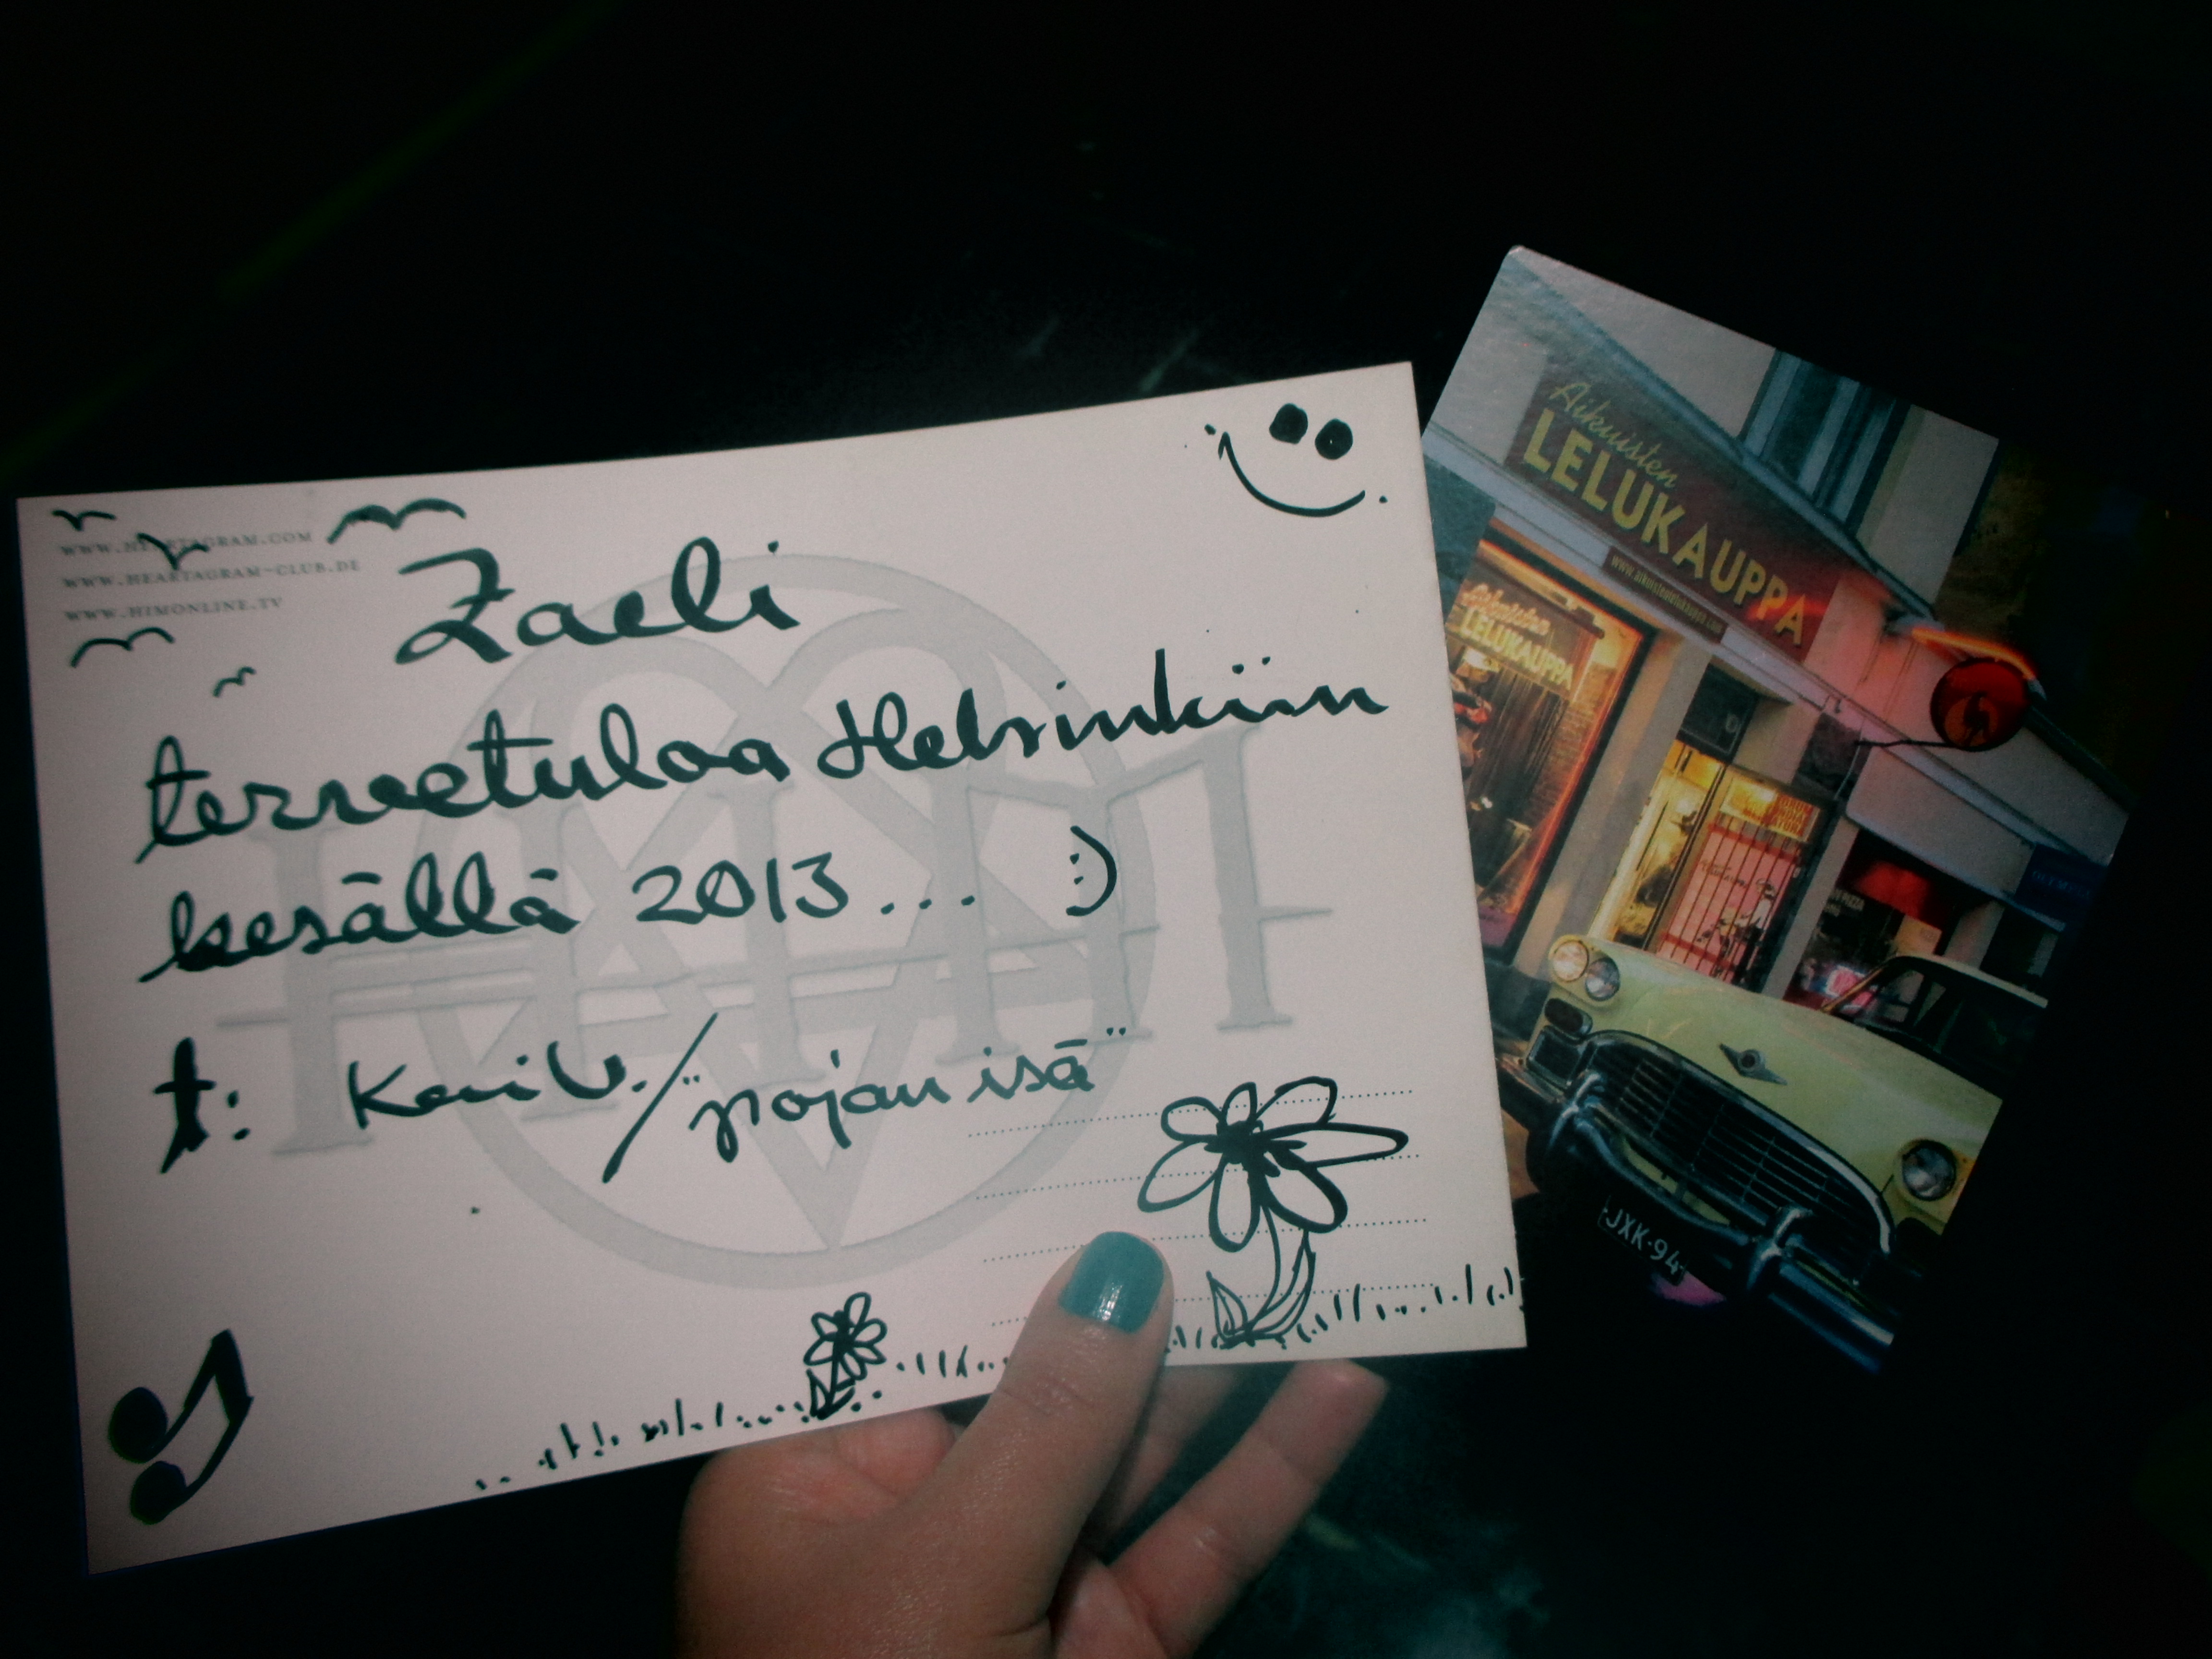 WWW.HEARTAGRAM.COM
WWW.HEARTAGRAM-CLUB.DE
WWW.HIMONLINE.TV
Zaeli
tervetuloa Helsinkiin
kesällä 2013... :)
t: Kari V. / "pojan isä"
HIM
Aikuisten
LELUKAUPPA
www.aikuistenlelukauppa.com
Aikuisten
LELUKAUPPA
JXK-94